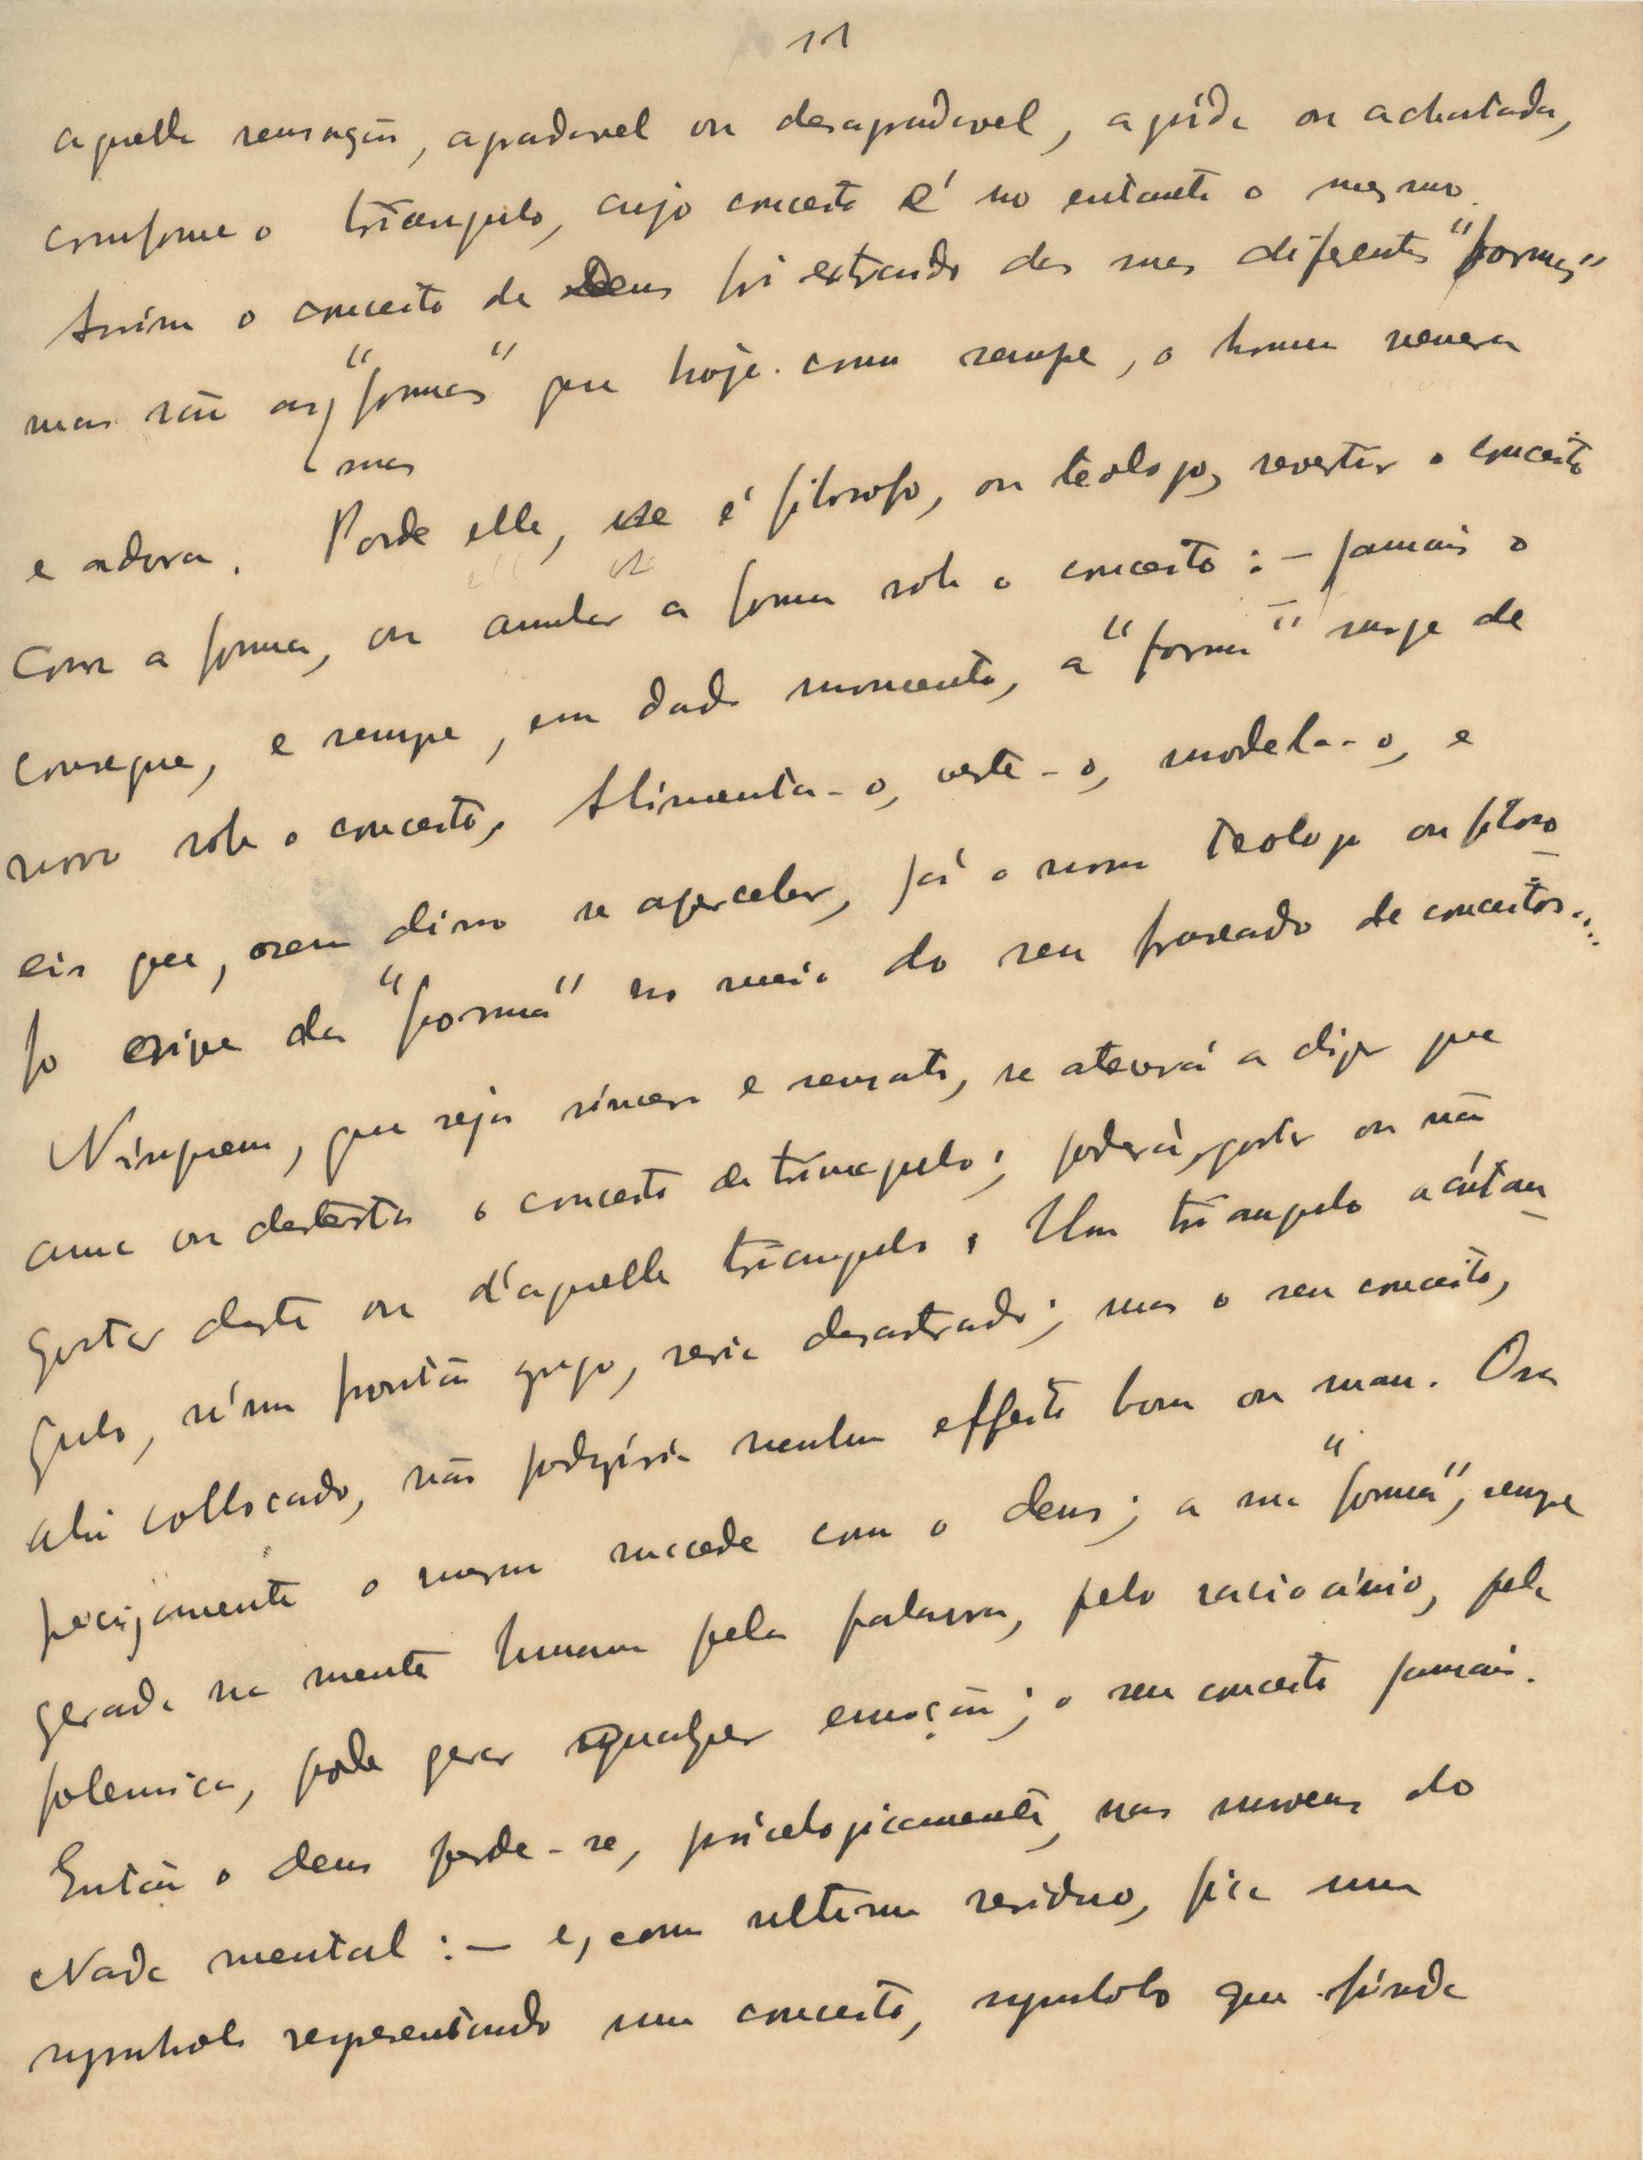 11
aquella sensação, agradavel ou desagradavel, aguda ou achatada,
conforme o triangulo, cujo conceito é no entanto o mesmo.
Assim o conceito de Deus foi extraido das suas diferentes "formas"
mas são as "formas" que hoje como sempre, o homem venera
suas
e adora. Pode elle, se é filosofo, ou teologo, revestir o conceito
com a forma, ou anular a forma sob o conceito: — jamais o
consegue, e sempre, em dado momento, a "forma" surge de
novo sob o conceito, Alimenta-o, veste-o, modela-o, e
eis que, sem disso se aperceber, já o nosso teologo ou filoso
fo exige da "forma" no meio do seu fraseado de conceitos...
Ninguem, que seja sincero e sensato, se atreverá a dizer que
ama ou detesta o conceito de triangulo; poderá, gostar ou não
gostar deste ou d'aquelle triangulo. Um triangulo acutan
gulo, n'um frontão grego, seria desastrado; mas o seu conceito,
ahi collocado, não produziria nenhum effeito bom ou mau. Ora
precizamente o mesmo succede com o deus; a sua "forma", sempre
gerada na mente humana pela palavra, pelo raciocinio, pela
polemica, pode gerar qualquer emoção; o seu conceito jamais.
Então o deus perde-se, psicologicamente, nas nuvens do
Nada mental: — e, como ultimo residuo, fica um
symbolo representando um conceito, symbolo que ainda